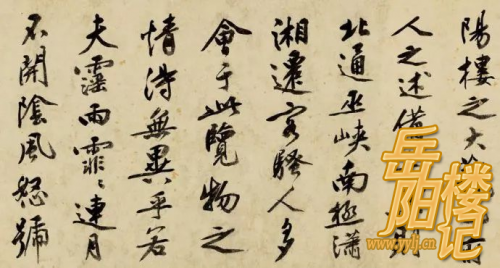 陽樓之大
人之述備
北通巫峽南極瀟
湘遷客騷人多
會于此覽物之
情得無異乎若
夫霪雨霏〻連月
不開陰風怒號
岳阳楼记
www.yylj.cn